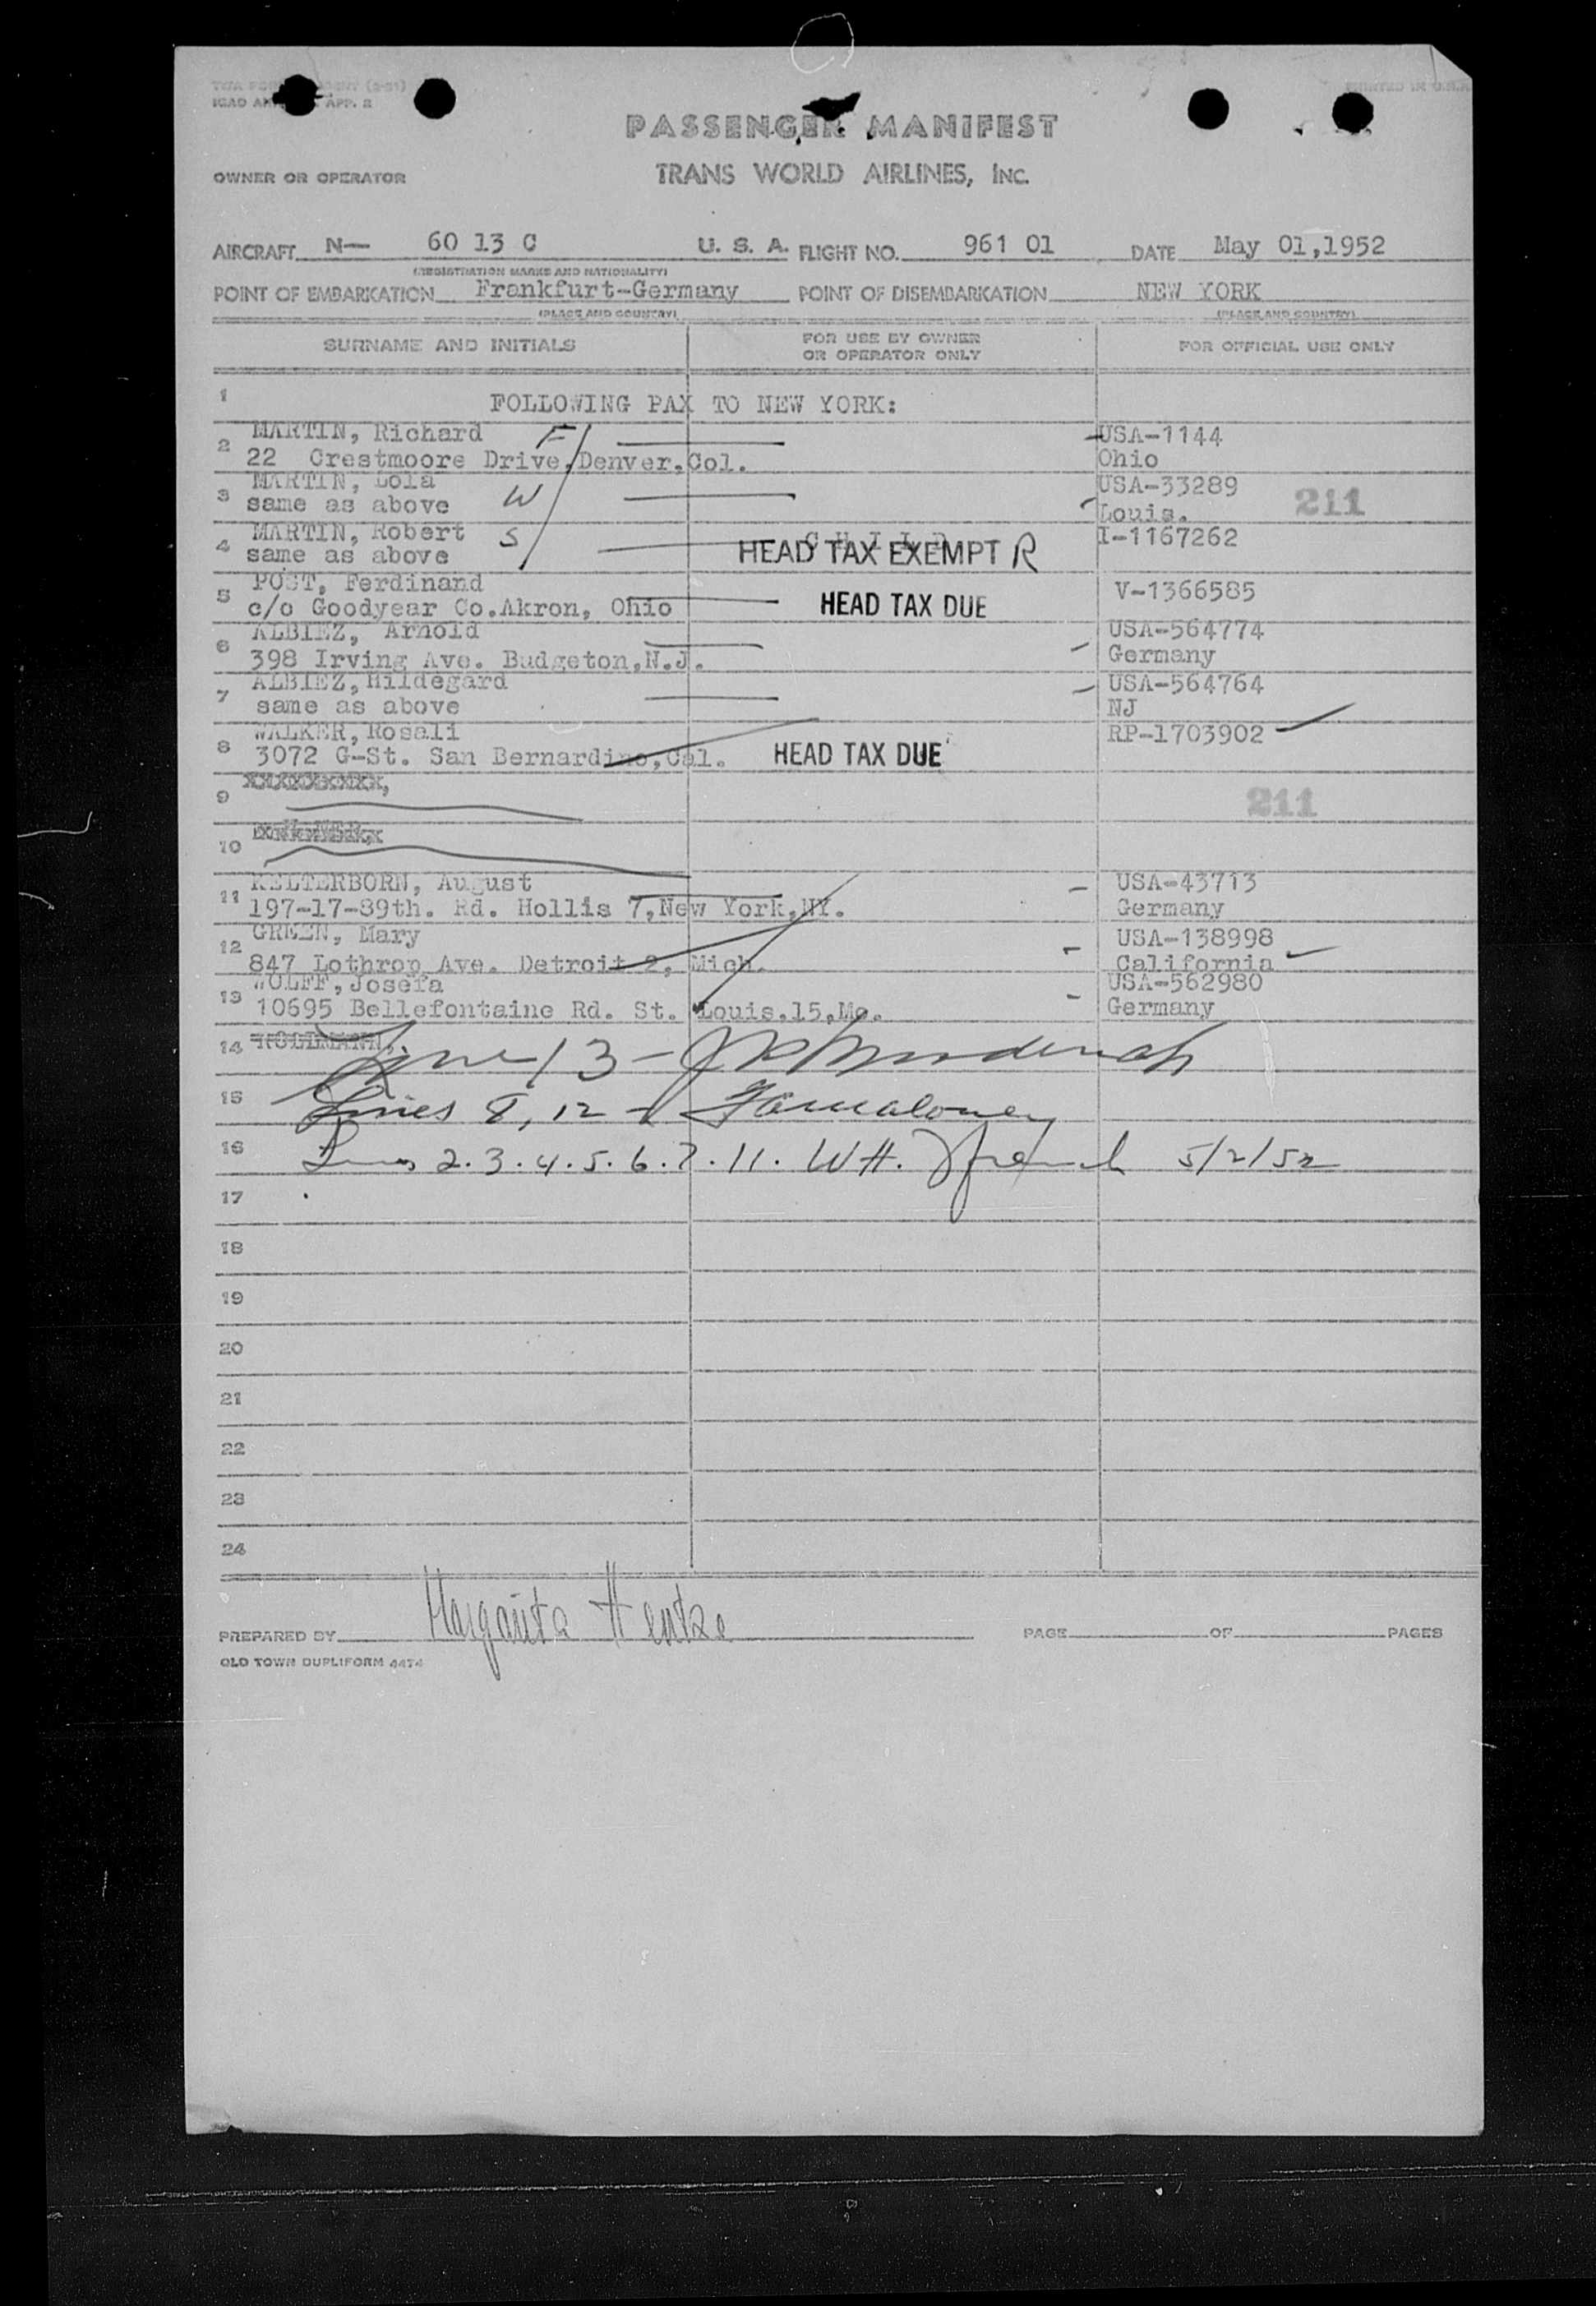 PRINTED IN U.S.A.
ICAO APP. 2
PASSENGER MANIFEST
OWNER OR OPERATOR
TRANS WORLD AIRLINES, INC.
AIRCRAFT N— 60 13 C U. S. A. FLIGHT NO. 961 01 DATE May 01,1952
(REGISTRATION MARKS AND NATIONALITY)
POINT OF EMBARKATION Frankfurt-Germany POINT OF DISEMBARKATION NEW YORK
(PLACE AND COUNTRY) (PLACE AND COUNTRY)
SURNAME AND INITIALS FOR USE BY OWNER OR OPERATOR ONLY FOR OFFICIAL USE ONLY
1 FOLLOWING PAX TO NEW YORK:
2 MARTIN, Richard F USA-1144
22 Crestmoore Drive,Denver,Col. Ohio
3 MARTIN, Lola W USA-33289
same as above Louis. 211
4 MARTIN, Robert S CHILD I-1167262
same as above HEAD TAX EXEMPT R
5 POST, Ferdinand V-1366585
c/o Goodyear Co.Akron, Ohio HEAD TAX DUE
6 ALBIEZ, Arnold USA-564774
398 Irving Ave. Budgeton,N.J. Germany
7 ALBIEZ,Hildegard USA-564764
same as above NJ
8 WALKER,Rosali RP-1703902
3072 G-St. San Bernardino,Cal. HEAD TAX DUE
9 211
10
11 KELTERBORN, August USA-43713
197-17-89th. Rd. Hollis 7,New York,NY. Germany
12 GREEN, Mary USA-138998
847 Lothrop Ave. Detroit 2, Mich. California
13 WOLFF,Josefa USA-562980
10695 Bellefontaine Rd. St. Louis,15,Mo. Germany
14 Line 13 -
15 Lines 8, 12 -
16 Lines 2.3.4.5.6.7.11. WH. French 5/2/52
17
18
19
20
21
22
23
24
PREPARED BY Margarita Hentze PAGE OF PAGES
OLD TOWN DUPLIFORM 4474